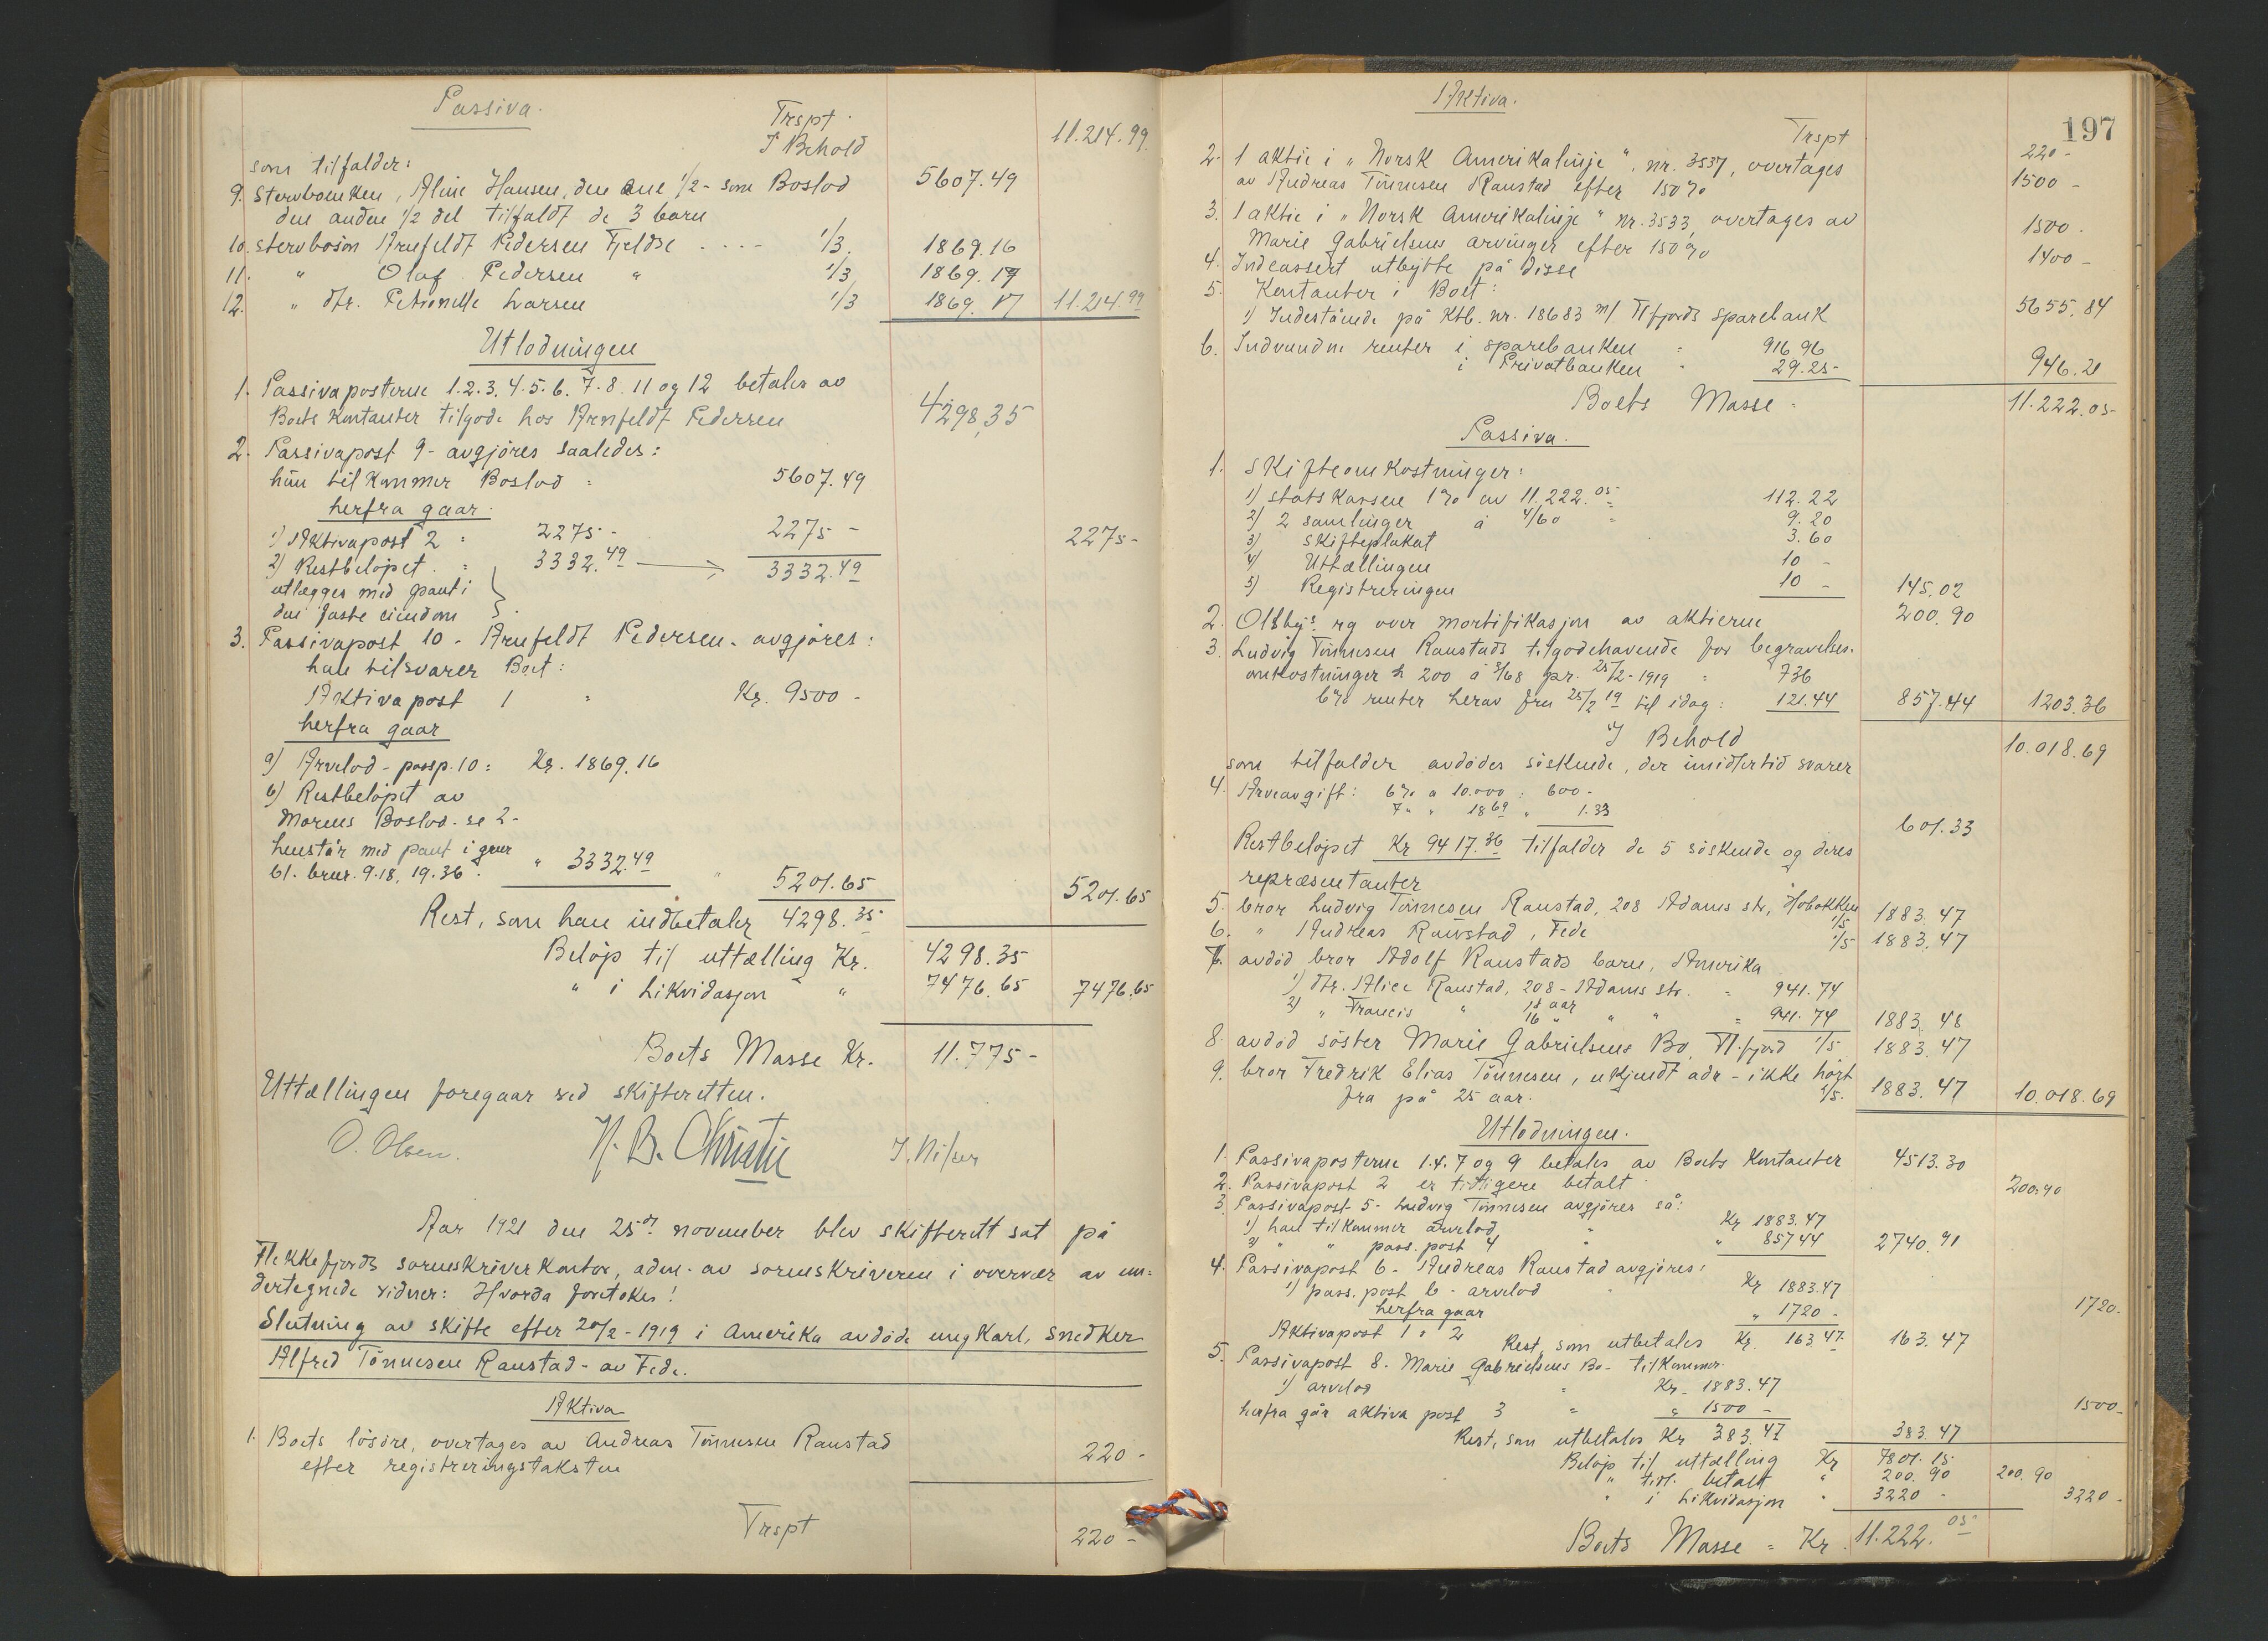 Passiva.
Trspt. 11.214.99.
I Behold
som tilfalder:
9. Stervboenken, Aline Hansen, den ene 1/2 - som Boslod 5607.49
den anden 1/2 del tilfaldt de 3 barn
10. Stervbosön Arnfeldt Pedersen Fjeldse .... 1/3. 1869.16
11. " Olaf Pedersen " 1/3 1869.17
12. " dtr. Petronelle Larsen 1/3 1869.17 11.214 99
Utlodningen
1. Passivaposterne 1.2.3.4.5.6.7.8.11 og 12 betales av
Boets kontanter tilgode hos Arnfeldt Pedersen 4298,35
2. Passivapost 9 - avgjöres saaledes:
hun tilkommer Boslod = 5607.49
herfra gaar.
1) Aktivapost 2 = 2275 - 2275 - 2275 -
2) Restbelöpet = 3332.49 3332.49
utlægges med pant i
den faste eiendom
3. Passivapost 10 - Arnfeldt Pedersen - avgjöres:
han tilsvarer Boet:
Aktivapost 1 " Kr. 9500 -
herfra gaar
a) Arvelod - passp. 10 = Kr. 1869.16
b) Restbelöpet av
Morens Boslod - se 2 -
henstår med pant i gnr
61. brnr. 9.18, 19.36. " 3332.49 " 5201.65 5201.65
Rest, som han indbetaler 4298.35
Belöp til uttælling Kr. 4298.35
" i Likvidasjon " 7476.65 7476.65
Boets Masse Kr. 11.775 -
Uttællingen foregaar ved skifteretten.
O. Olsen. N. B. Christie J. Nilsen
Aar 1921 den 25de november blev skifterett sat på
Flekkefjords sorenskriverkontor, adm. av sorenskriveren i overvær av un-
dertegnede vidner: Hvorda foretokes!
Slutning av skifte efter 20/2 - 1919 i Amerika avdöde ungkarl, snedker
Alfred Tönnesen Raustad - av Fede.
Aktiva
1. Boets lösöre, overtages av Andreas Tönnesen Raustad
efter registreringstaksten 220 -
Trspt 220 -
197
Aktiva.
Trspt 220 -
2. 1 aktie i "Norsk Amerikalinje", nr. 3537, overtages
av Andreas Tönnesen Raustad efter 150% 1500 -
3. 1 aktie i "Norsk Amerikalinje" nr. 3533, overtages av
Marie Gabrielsens arvinger efter 150% 1500 -
4. Indcassert utbytte på disse 1400 -
5. Kontanter i Boet:
1) Indestående på Ktb. nr. 18683 m/ Flfjords sparebank 5655.84
6. Indvundne renter i sparebanken = 916 96
i Privatbanken " 29.25 - 946.21
Boets Masse = 11.222.05
Passiva.
1. Skifteomkostninger:
1) statskassen 1% av 11.222.05 112.22
2) 2 samlinger à 4/60 = 9.20
3) Skifteplakat 3.60
4) Uttællingen 10 -
5) Registreringen 10 - 145.02
2. rg over mortifikasjon av aktierne 200.90
3. Ludvig Tönnesen Raustads tilgodehavende for begravelses-
omkostninger 200 à 3/68 pr. 25/2 - 1919 = 736
6% renter herav fra 25/2 19 til idag: 121.44 857.44 1203.36
I Behold 10.018.69
som tilfalder avdödes söskende, der imidlertid svarer
4. Arveavgift: 6% a 10.000 : 600 -
7 " " 18 69 " 1.33 601.33
Restbelöpet Kr 9417.36 tilfalder de 5 söskende og deres
repræsentanter
5. bror Ludvig Tönnesen Raustad, 208 Adams str, Hobokken 1/5 1883.47
6. " Andreas Raustad, Fede 1/5 1883.47
7. avdöd bror Adolf Raustads barn, Amerika
1) dtr. Alice Raustad, 208 - Adams str. = 941.74
18 aar
2) " Francis " 16 " " " = 941.74 1883.48
8. avdöd söster Marie Gabrielsens Bo, Fl.fjord 1/5 1883.47
9. bror Fredrik Elias Tönnesen, ukjendt adr - ikke hört
fra på 25 aar. 1/5. 1883.47 10.018.69
Utlodningen.
1. Passivaposterne 1.4.7 og 9 betales av Boets Kontanter 4513.30
2. Passivapost 2 er tidligere betalt 200.90
3. Passivapost 5 - Ludvig Tönnesen avgjöres så:
1) han tilkommer arvelod " Kr 1883.47
2) " " pass. post 4 " " 857 44 2740.91
4. Passivapost 6 - Andreas Raustad avgjöres:
1) pass. post 6 - arvelod " Kr 1883.47
herfra gaar
Aktivapost 1 & 2 " 1720 - 1720.
Rest, som utbetales Kr. 163.47 163.47
5. Passivapost 8. Marie Gabrielsens Bo - tilkommer
1) arvelod = Kr - 1883.47
herfra går aktiva post 3 = " 1500 - 1500 -
Rest, som utbetales Kr 383.47 383.47
Belöp til uttælling Kr 7801.15
" tidl. betalt " 200.90 200.90
" i Likvidasjon " 3220 - 3220 -
Boets Masse = Kr. 11.222.05